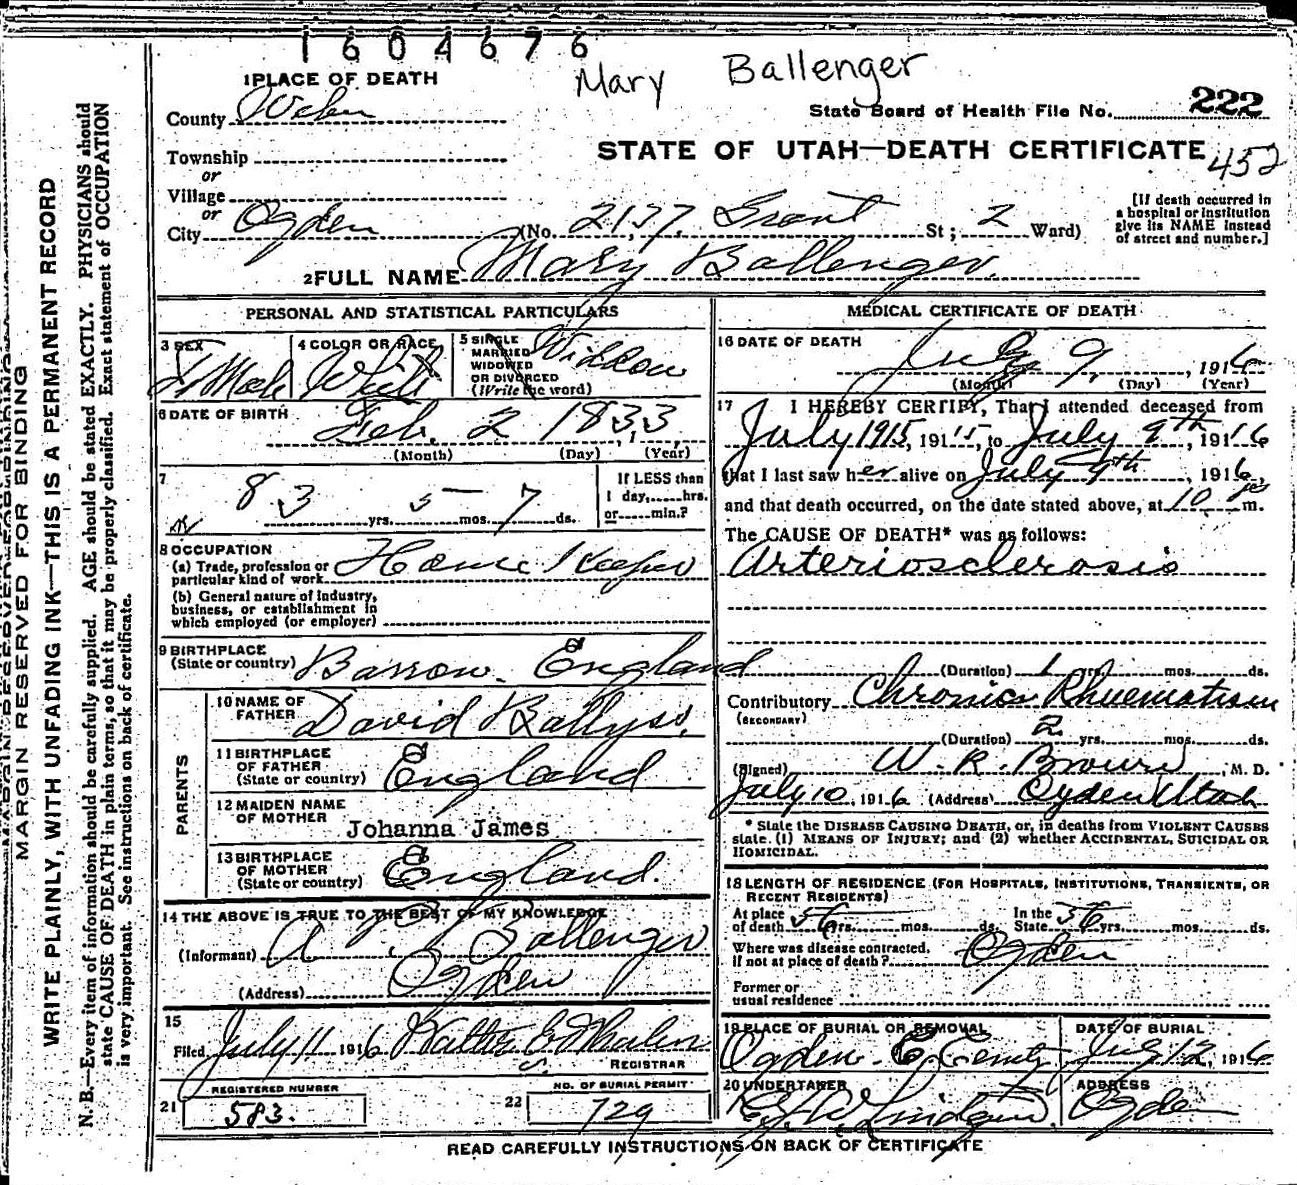 1604676
Mary Ballenger
1 PLACE OF DEATH
County Weber
State Board of Health File No. 222
Township
or
STATE OF UTAH—DEATH CERTIFICATE 452
Village
or
City Ogden (No. 2137. Grant St; 2 Ward)
[If death occurred in
a hospital or institution
give its NAME instead
of street and number.]
2 FULL NAME Mary Ballenger.
PERSONAL AND STATISTICAL PARTICULARS
3 SEX
4 COLOR OR RACE White
5 SINGLE
MARRIED
WIDOWED
OR DIVORCED
(Write the word)
Widow
6 DATE OF BIRTH Feb. 2 1833
(Month) (Day) (Year)
7
83 yrs. 5 mos. 7 ds.
If LESS than
1 day,......hrs.
or......min.?
8 OCCUPATION
(a) Trade, profession or
particular kind of work House Keeper
(b) General nature of Industry,
business, or establishment in
which employed (or employer)
9 BIRTHPLACE
(State or country) Barrow. England
PARENTS
10 NAME OF
FATHER David
11 BIRTHPLACE
OF FATHER
(State or country) England
12 MAIDEN NAME
OF MOTHER
Johanna James
13 BIRTHPLACE
OF MOTHER
(State or country) England.
14 THE ABOVE IS TRUE TO THE BEST OF MY KNOWLEDGE
(Informant) Ballenger
(Address) Ogden
15
Filed July 11 1916 Walter E Whalen
REGISTRAR
REGISTERED NUMBER
21 583.
NO. OF BURIAL PERMIT
22 729
MEDICAL CERTIFICATE OF DEATH
16 DATE OF DEATH
July 9, 1916
(Month) (Day) (Year)
17 I HEREBY CERTIFY, That I attended deceased from
July 1915, 1915, to July 9th, 1916
that I last saw her alive on July 9th, 1916,
and that death occurred, on the date stated above, at 10 m.
The CAUSE OF DEATH* was as follows:
Arteriosclerosis
(Duration) 1 yrs. mos. ds.
Contributory Chronic Rhuematism
(SECONDARY)
(Duration) 2 yrs. mos. ds.
(Signed) W. R. Brown, M. D.
July 10, 1916 (Address) Ogden Utah
* State the DISEASE CAUSING DEATH, or, in deaths from VIOLENT CAUSES
state (1) MEANS OF INJURY; and (2) whether ACCIDENTAL, SUICIDAL OR
HOMICIDAL.
18 LENGTH OF RESIDENCE (FOR HOSPITALS, INSTITUTIONS, TRANSIENTS, OR
RECENT RESIDENTS)
At place
of death 56 yrs. mos. ds.
In the
State 56 yrs. mos. ds.
Where was disease contracted,
if not at place of death? Ogden
Former or
usual residence
19 PLACE OF BURIAL OR REMOVAL
Ogden
DATE OF BURIAL
July 12, 1916
20 UNDERTAKER
ADDRESS
Ogden
READ CAREFULLY INSTRUCTIONS ON BACK OF CERTIFICATE
MARGIN RESERVED FOR BINDING
WRITE PLAINLY, WITH UNFADING INK—THIS IS A PERMANENT RECORD
N. B.—Every item of information should be carefully supplied. AGE should be stated EXACTLY. PHYSICIANS should
state CAUSE OF DEATH in plain terms, so that it may be properly classified. Exact statement of OCCUPATION
is very important. See instructions on back of certificate.